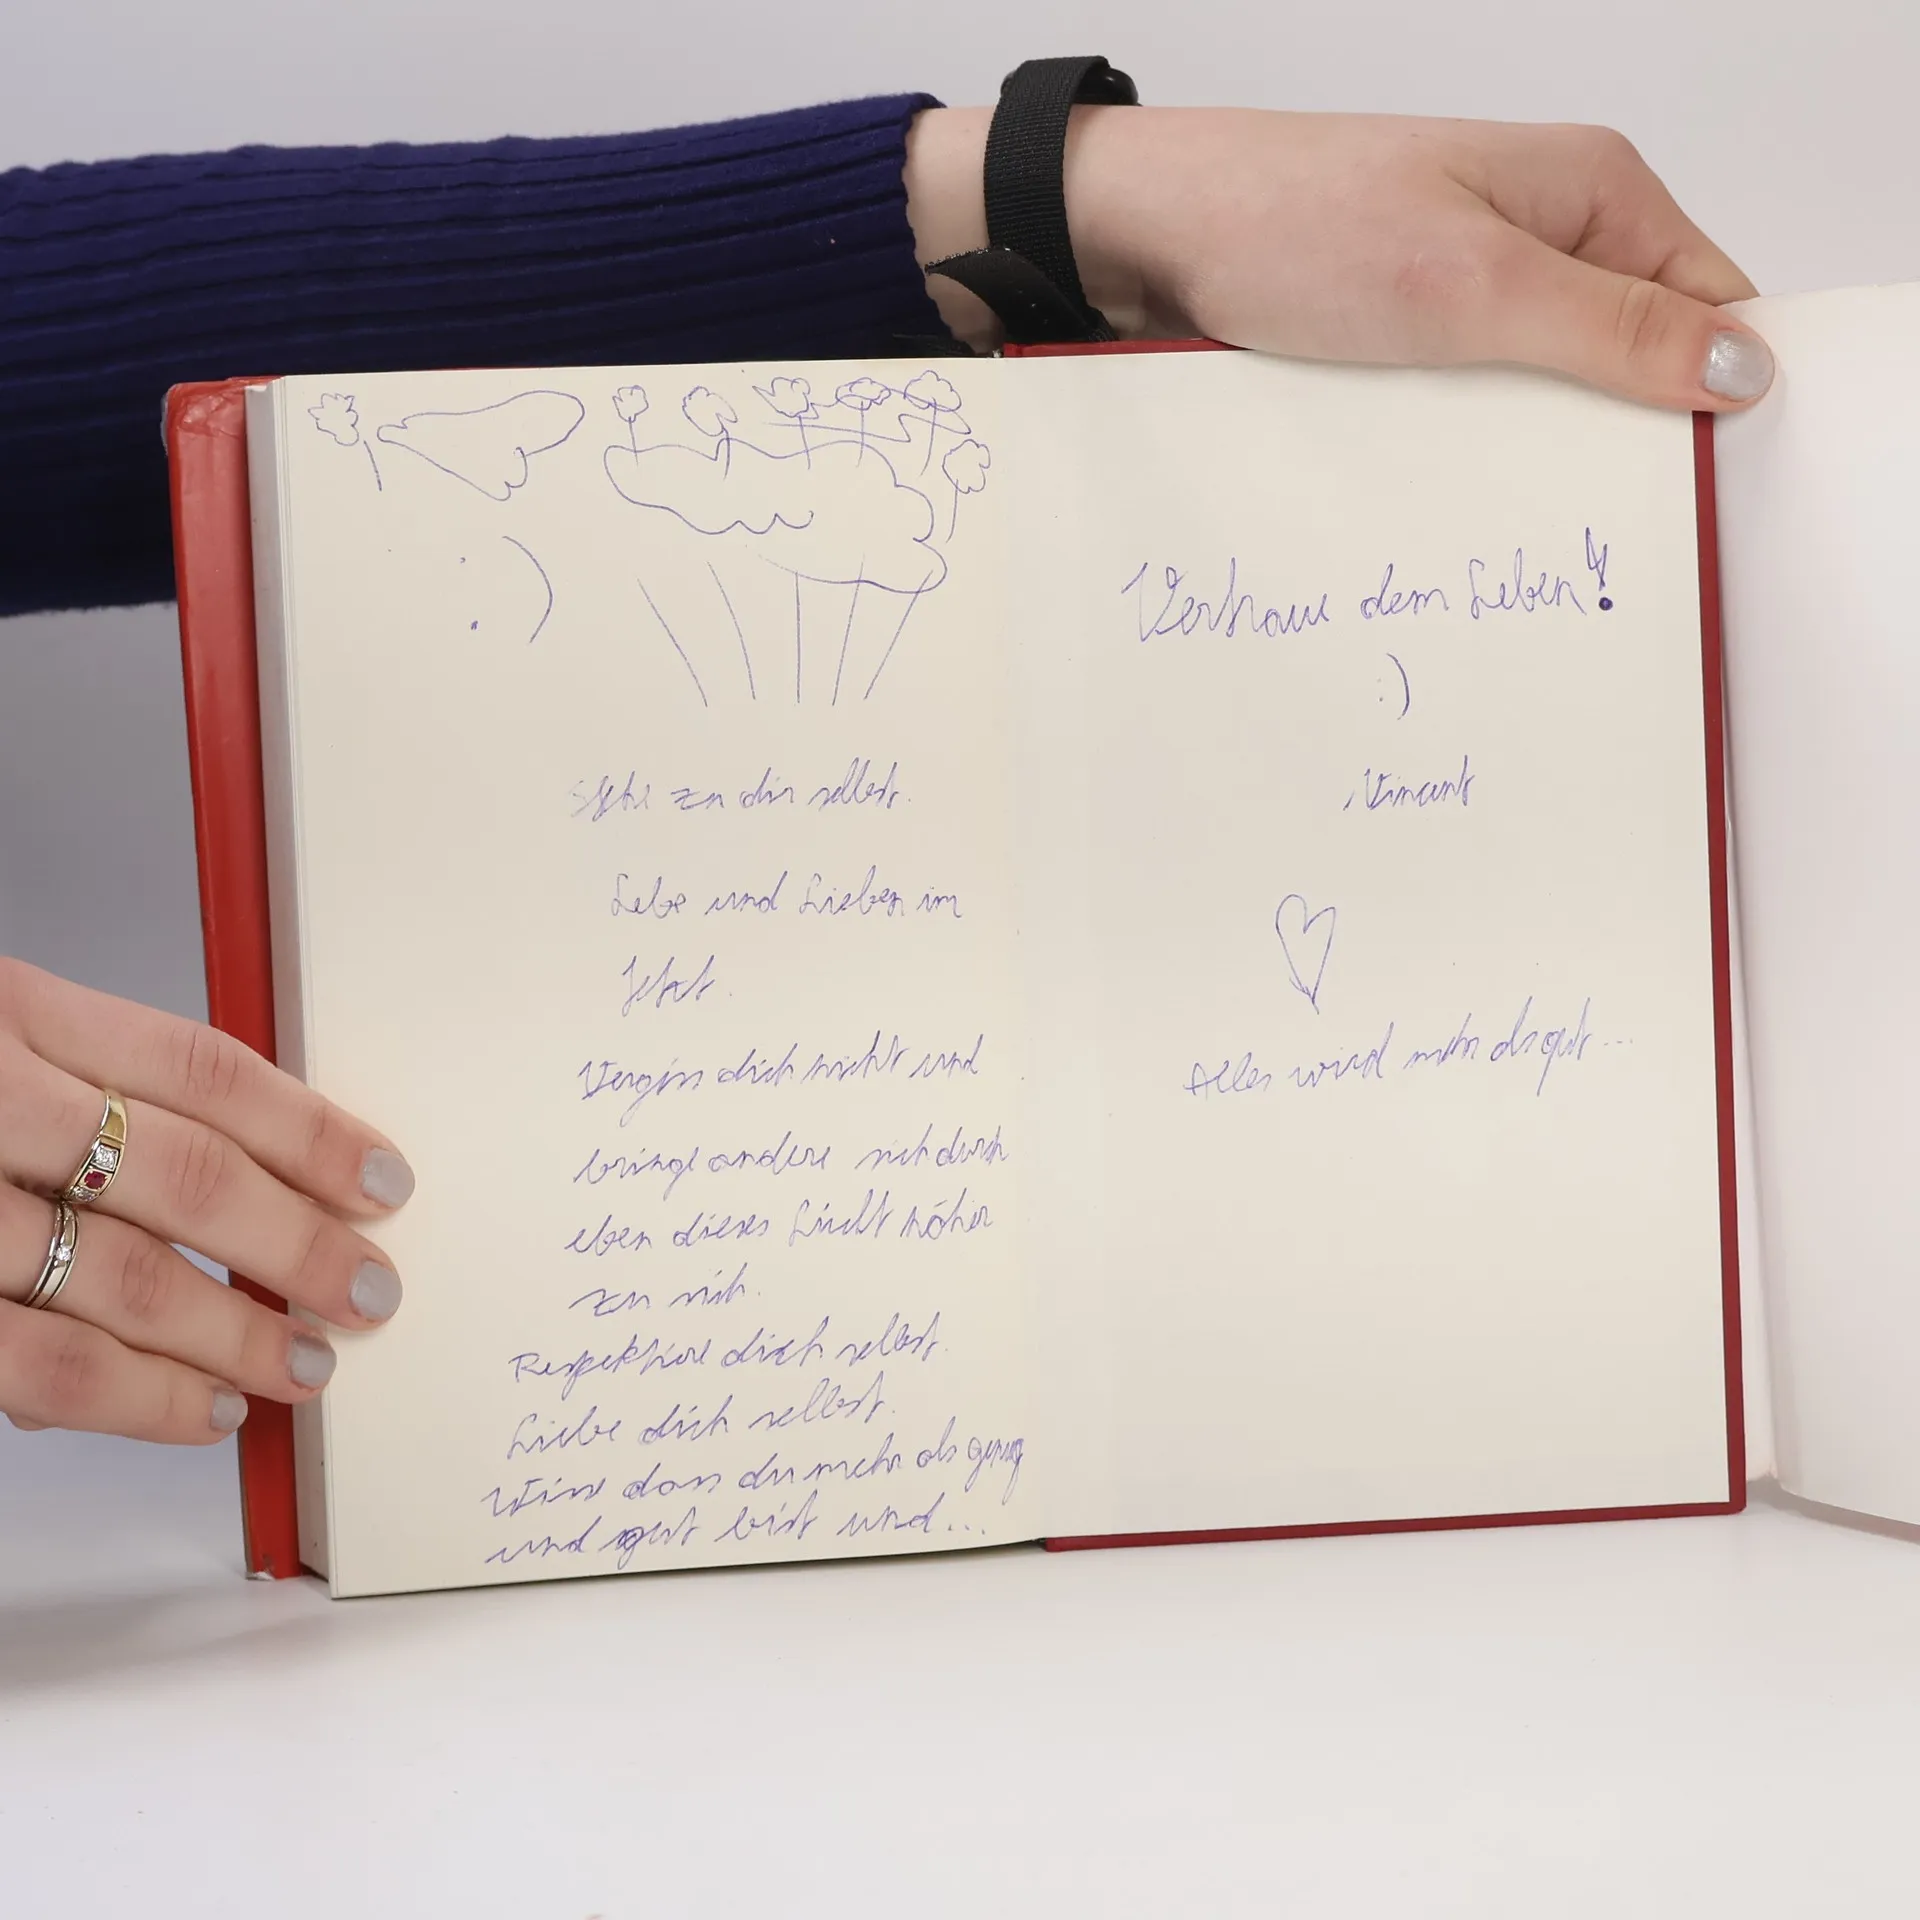 :)
Stehe zu dir selbst.
Lebe und Lieben im
Jetzt.
Vergiss dich nicht und
bringe andere sich durch
eben dieses Licht näher
zu sich.
Respektiere dich selbst.
Liebe dich selbst.
Wisse dass du mehr als genug
und gut bist und...
Vertraue dem Leben!
:)
Vincent
Alles wird mehr als gut...